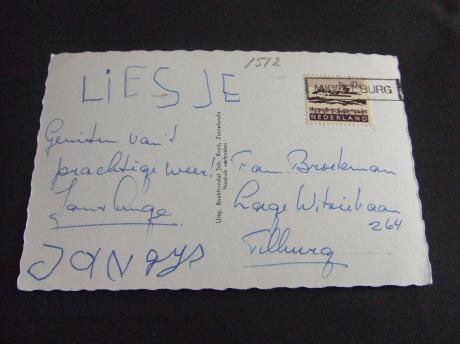 LiESJE
Genieten van't
prachtige weer!
JANGYS
Uitg. Boekhandel Joh. Kruit, Zoutelande
Nadruk verboden
1512
MIDDELBURG
NEDERLAND
Fam. Broekman
Lage Witsiebaan
264
Tilburg